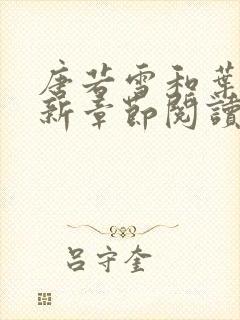 唐若雪和葉
新章節閱讀
呂守奎